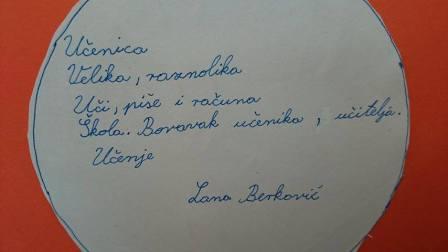 Učenica
Velika, raznolika
Uči, piše i računa
Škola. Boravak učenika, učitelja.
Učenje
Lana Berković